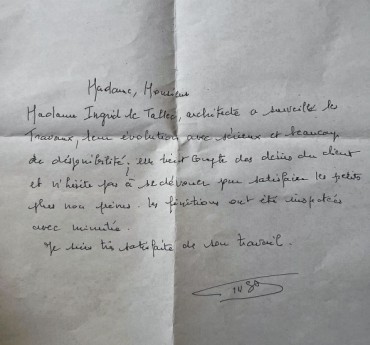 Madame, Monsieur
Madame Ingrid le Tallec, architecte a surveillé les
travaux, leur évolution avec sérieux et beaucoup
de disponibilité. elle tient compte des désirs du client
et n'hésite pas à se dévouer pour satisfaire les petits
plus non prévus. les finitions ont été inspectées
avec minutie.
Je suis très satisfaite de son travail.